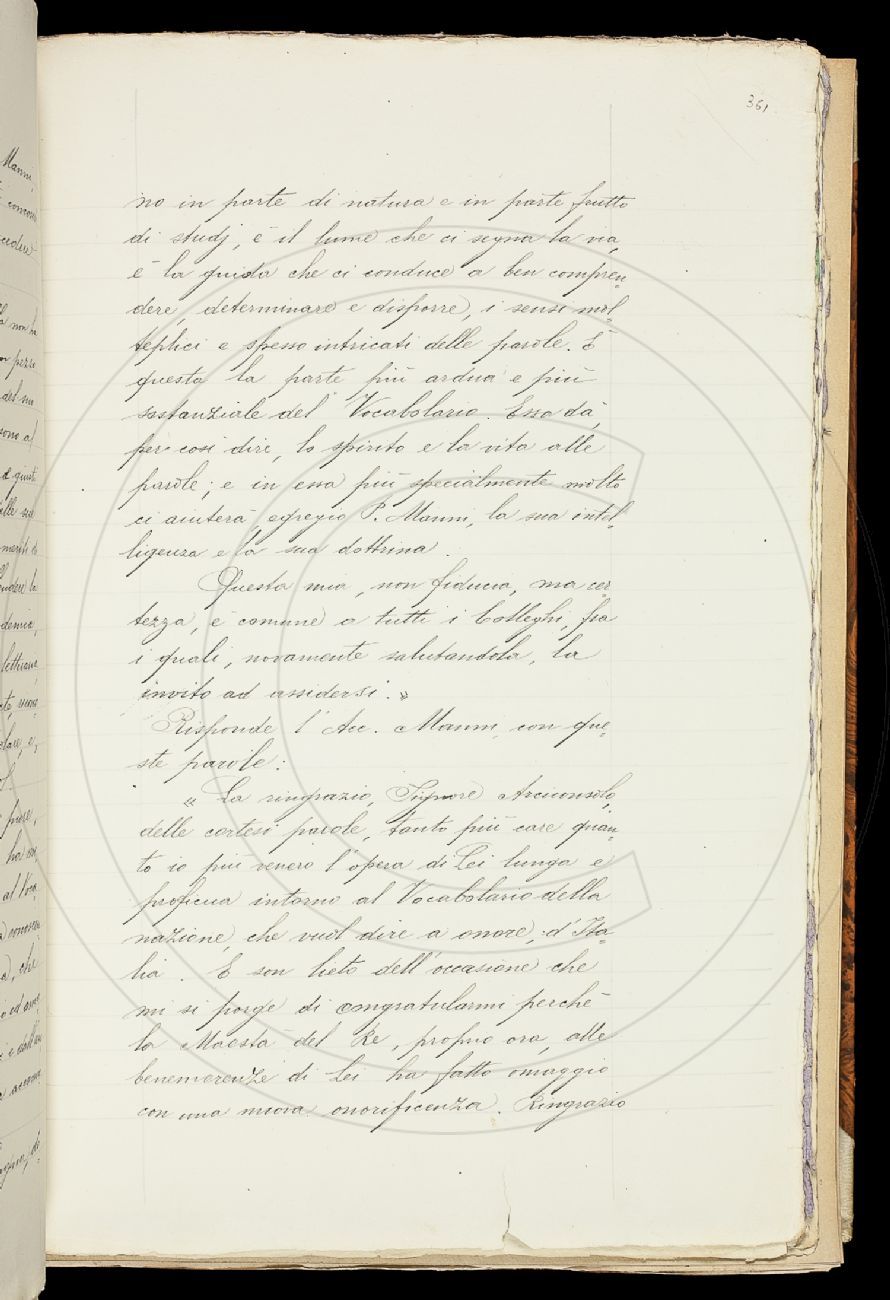 361
no in parte di natura e in parte frutto
di studj, è il lume che ci segna la via,
è la guida che ci conduce a ben compren-
dere, determinare e disporre, i sensi mol-
teplici e spesso intricati delle parole. È
questa la parte più ardua e più
sostanziale del Vocabolario. Essa dà,
per così dire, lo spirito e la vita alle
parole; e in essa più specialmente molto
ci aiuterà, egregio P. Manni, la sua intel-
ligenza e la sua dottrina.
Questa mia, non fiducia, ma cer
tezza, è comune a tutti i Colleghi, fra
i quali, novamente salutandola, la
invito ad assidersi."
Risponde l'Acc. Manni con que-
ste parole:
"La ringrazio, Signore Arciconsolo,
delle cortesi parole, tanto più care quan-
to io più venero l'opera di Lei lunga e
proficua intorno al Vocabolario della
nazione, che vuol dire a onore, d'Ita-
lia. E son lieto dell'occasione che
mi si porge di congratularmi perchè
la Maestà del Re, proprio ora, alle
benemerenze di Lei ha fatto omaggio
con una nuova onorificenza. Ringrazio